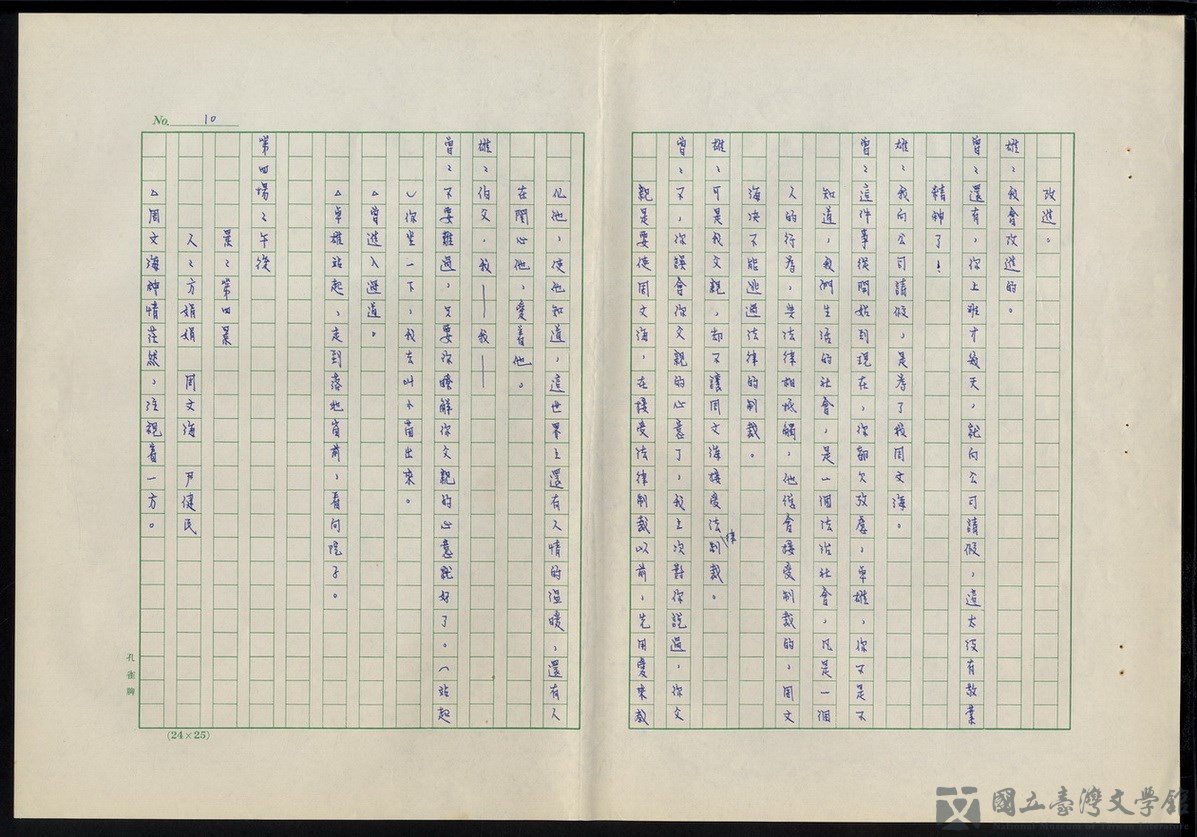 改進。
雄：我會改進的。
曾：還有，你上班才幾天，就向公司請假，這太沒有敬業
精神了！
雄：我向公司請假，是為了找周文海。
曾：這件事從開始到現在，你都欠考慮，卓雄，你不是不
知道，我們生活的社會，是一個法治社會，凡是一個
人的行為，與法律相抵觸，他從會接受制裁的，周文
海決不能逃過法律的制裁。
雄：可是我父親，却不讓周文海接受法律制裁。
曾：不，你誤會你父親的心意了，我上次對你說過，你父
親是要使周文海，在接受法律制裁以前，先用愛來感
化他，使他知道，這世界上還有人情的溫暖，還有人
在關心他，愛着他。
雄：伯父，我——我——
曾：不要難過，只要你瞭解你父親的心意就好了。（站起
）你坐一下，我去叫小苗出來。
△曾進入過道。
△卓雄站起，走到落地窗前，看向院子。
第四場：午後
景：第四景
人：方娟娟　周文海　尹健民
△周文海神情茫然，注視着一方。
No. 10
孔雀牌
(24×25)
國立臺灣文學館
National Museum of Taiwan Literature